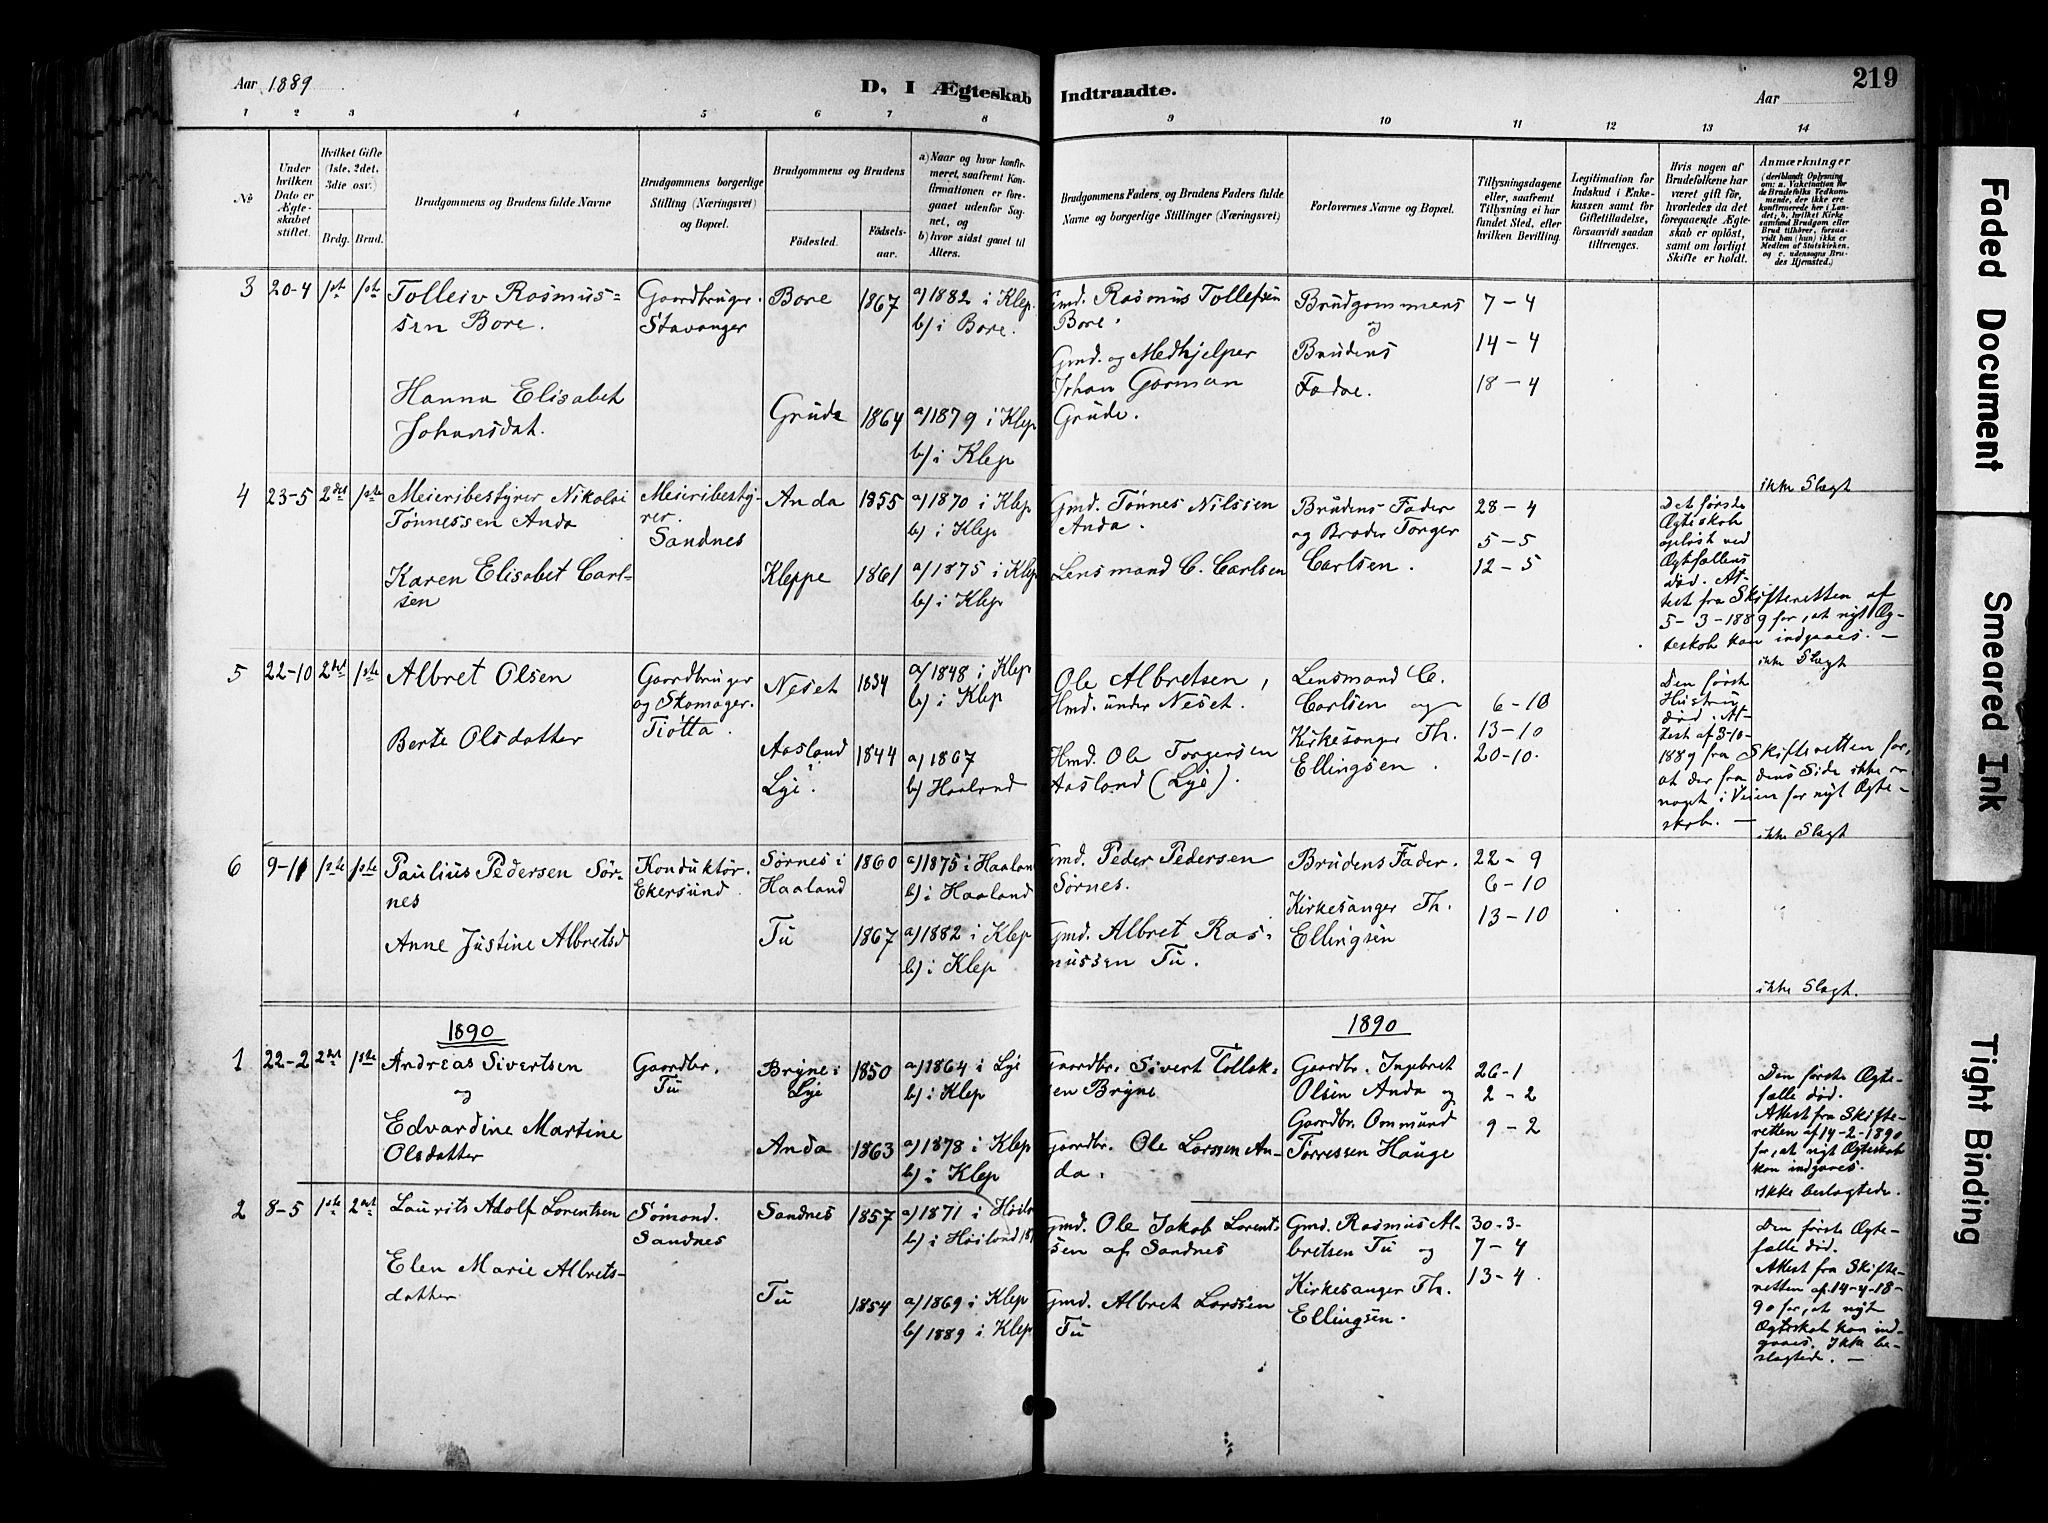 Aar 1889
D, I Ægteskab Indtraadte.
219
Aar
1 2 3 4 5 6 7 8 9 10 11 12 13 14
No
Under hvilken Dato er Ægteskabet stiftet.
Hvilket Gifte (1ste, 2det, 3die osv.)
Brdg. Brud.
Brudgommens og Brudens fulde Navne
Brudgommens borgerlige Stilling (Næringsvei) og Bopæl.
Brudgommens og Brudens
Fødested. Fødselsaar.
a) Naar og hvor konfirmeret, saafremt Konfirmationen er foregaaet udenfor Sognet, og
b) hvor sidst gaaet til Alters.
Brudgommens Faders og Brudens Faders fulde Navne og borgerlige Stillinger (Næringsvei)
Forlovernes Navne og Bopæl.
Tillysningsdagene eller, saafremt Tillysning ei har fundet Sted, efter hvilken Bevilling.
Legitimation for Indskud i Enkekassen samt for Giftetilladelse, forsaavidt saadan tiltrænges.
Hvis nogen af Brudefolkene har været gift før, hvorledes da det foregaaende Ægteskab er opløst, samt om lovligt Skifte er holdt.
Anmærkninger (deriblandt Oplysning om: a. Vakcination for de Brudefolks Vedkommende, der ikke ere konfirmerede her i Landet; b. hvilket Kirkesamfund Brudgom eller Brud tilhører, forsaavidt han (hun) ikke er Medlem af Statskirken, og c. udensogns Brudes Hjemsted.)
3 20-4 1ste 1ste
Tolleiv Rasmus=
sen Bore.
Hanna Elisabet
Johansdat.
Gaardbruger.
Stavanger
Bore 1867
a) 1882 i Klep.
b) i Bore.
Grude 1864
a) 1879 i Klep
b) i Klep
Gmd. Rasmus Tollefsen
Bore.
Gmd. og Medhjelper
Johan Gorman
Grude.
Brudgommens
og
Brudens
Fadre.
7-4
14-4
18-4
ikke Slagt
4 23-5 2det 1ste
Meieribestyrer Nikolai
Tønnessen Anda
Karen Elisabet Carl-
sen
Meieribesty-
rer.
Sandnes
Anda 1855
a) 1870 i Klep
b) i Klep
Kleppe 1861
a) 1875 i Klep
b) i Klep
Gmd. Tønnes Nilssen
Anda.
Lensmand C. Carlsen
Brudens Fader
og Broder Torger
Carlsen.
28-4
5-5
12-5
Det første
Ægteskab
opløst ved
Ægtfællens
død. At-
test fra Skifteretten af
5-3-1889 for, at nyt Æg-
teskab kan indgaaes. -
ikke Slagt
5 22-10 2det 1ste
Albret Olsen
Berte Olsdatter
Gaardbruger
og Skomager.
Tiøtta.
Neset 1834
a) 1848 i Klep
b) i Klep
Aasland
Lye. 1844
a) 1867
b) Haaland
Ole Albretsen,
Hmd. under Neset.
Hmd. Ole Torgersen
Aasland (Lye).
Lensmand C.
Carlsen og
Kirkesanger Th.
Ellingsen.
6-10
13-10
20-10.
Den første
Hustru
død. At-
test af 3-10-
1889 fra Skifteretten for,
at der fra dens Side ikke er
noget i Veien for nyt Ægte-
skab. -
ikke Slagt
6 9-11 1ste 1ste
Paulius Pedersen Sør-
nes
Anne Justine Albretsd
Konduktør.
Ekersund
Sørnes i
Haaland 1860
a) 1875 i Haaland
b) i Haaland
Tu 1867
a) 1882 i Klep
b) i Klep
Gmd. Peder Pedersen
Sørnes.
Gmd. Albret Ras-
mussen Tu.
Brudens Fader.
Kirkesanger Th.
Ellingsen
22-9
6-10
13-10
ikke Slagt.
1890
1890
1 22-2 2det 1ste
Andreas Sivertsen
og
Edvardine Martine
Olsdatter
Gaardbr.
Tu
Bryne i
Lye 1850
a) 1864 i Lye
b) i Klep
Anda 1863
a) 1878 i Klep
b) i Klep
Gaardbr. Sivert Tollak-
sen Bryne
Gaardbr. Ole Larssen An-
da.
Gaardbr. Ingebret
Olsen Anda og
Gaardbr. Ommund
Tørressen Hauge
26-1
2-2
9-2
Den første Ægte-
fælle død.
Attest fra Skifte-
retten af 14-2-1890
for, at nyt Ægteskab
kan indgaaes.
Ikke beslægtede.
2 8-5 1ste 2det
Laurits Adolf Lorentsen
Elen Marie Albrets-
datter
Sømand.
Sandnes
Sandnes 1857
a) 1871 i Høil
b) i Høiland
Tu 1854
a) 1869 i Klep
b) 1889 i Klep
Gmd. Ole Jakob Lorent-
sen af Sandnes
Gmd. Albret Larssen
Tu
Gmd. Rasmus Al-
bretsen Tu og
Kirkesanger Th.
Ellingsen.
30-3-
7-4
13-4.
Den første Ægte-
fælle død.
Attest fra Skifte-
retten af 14-4-18-
90 for, at nyt
Ægteskab kan ind-
gaaes. Ikke be-
slægtede. -
Faded Document
Smeared Ink
Tight Binding